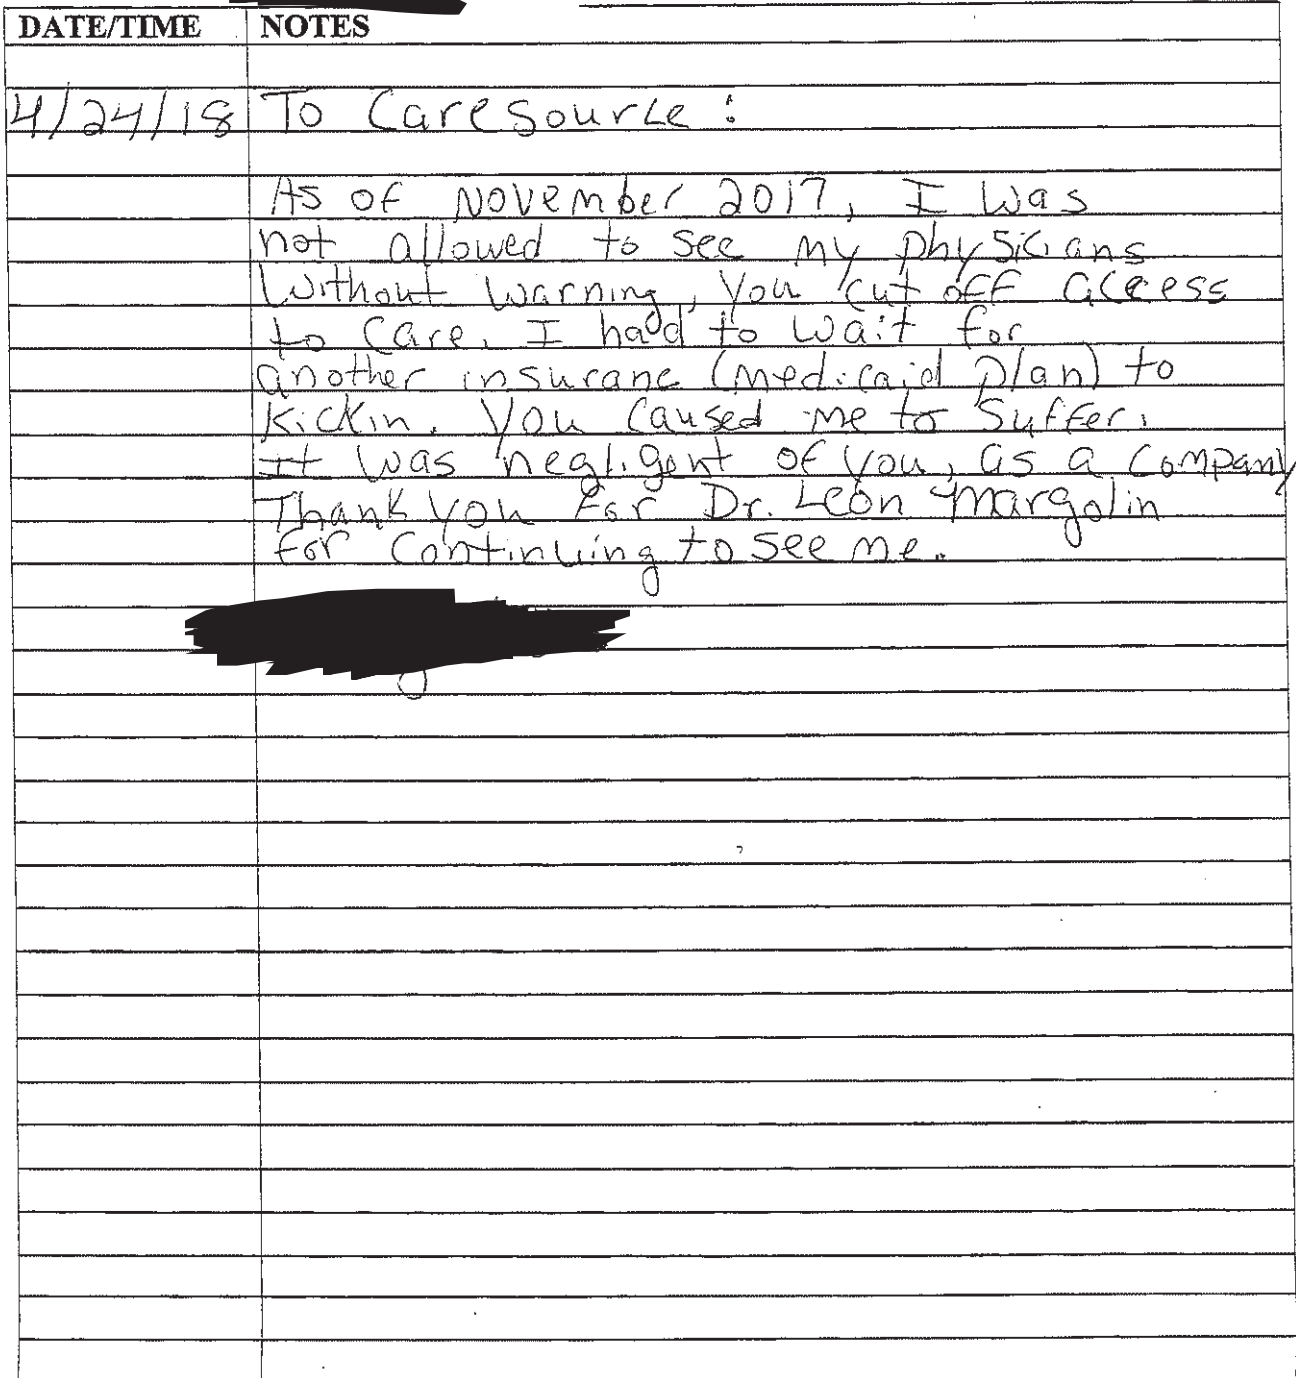 DATE/TIME NOTES
4/24/18 To Caresource:
As of November 2017, I was
not allowed to see my physicians
without warning, you cut off access
to care. I had to wait for
another insurane (medicaid plan) to
kickin. You caused me to suffer.
It was negligent of you, as a company
Thank you for Dr. Leon Margolin
for continuing to see me.